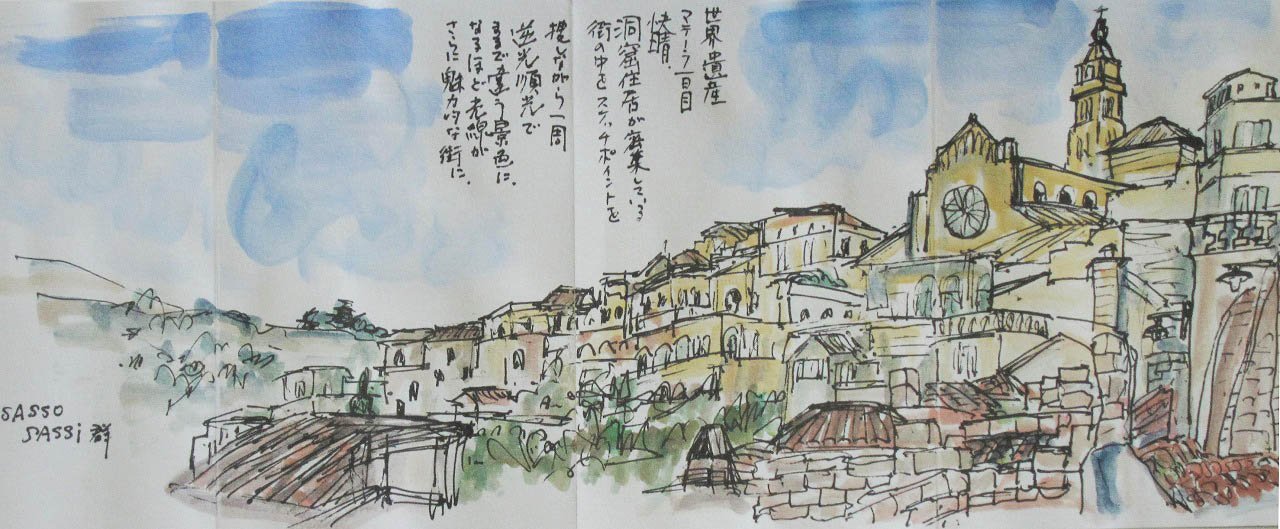 世界遺産
マテーラ一日目
快晴.
洞窟住居が密集している
街の中をスケッチポイントを
捜しながら一周
逆光順光で
まるで違う景色に.
なるほど老眼が
さらに魅力的な街に.
SASSO
SASSi 群